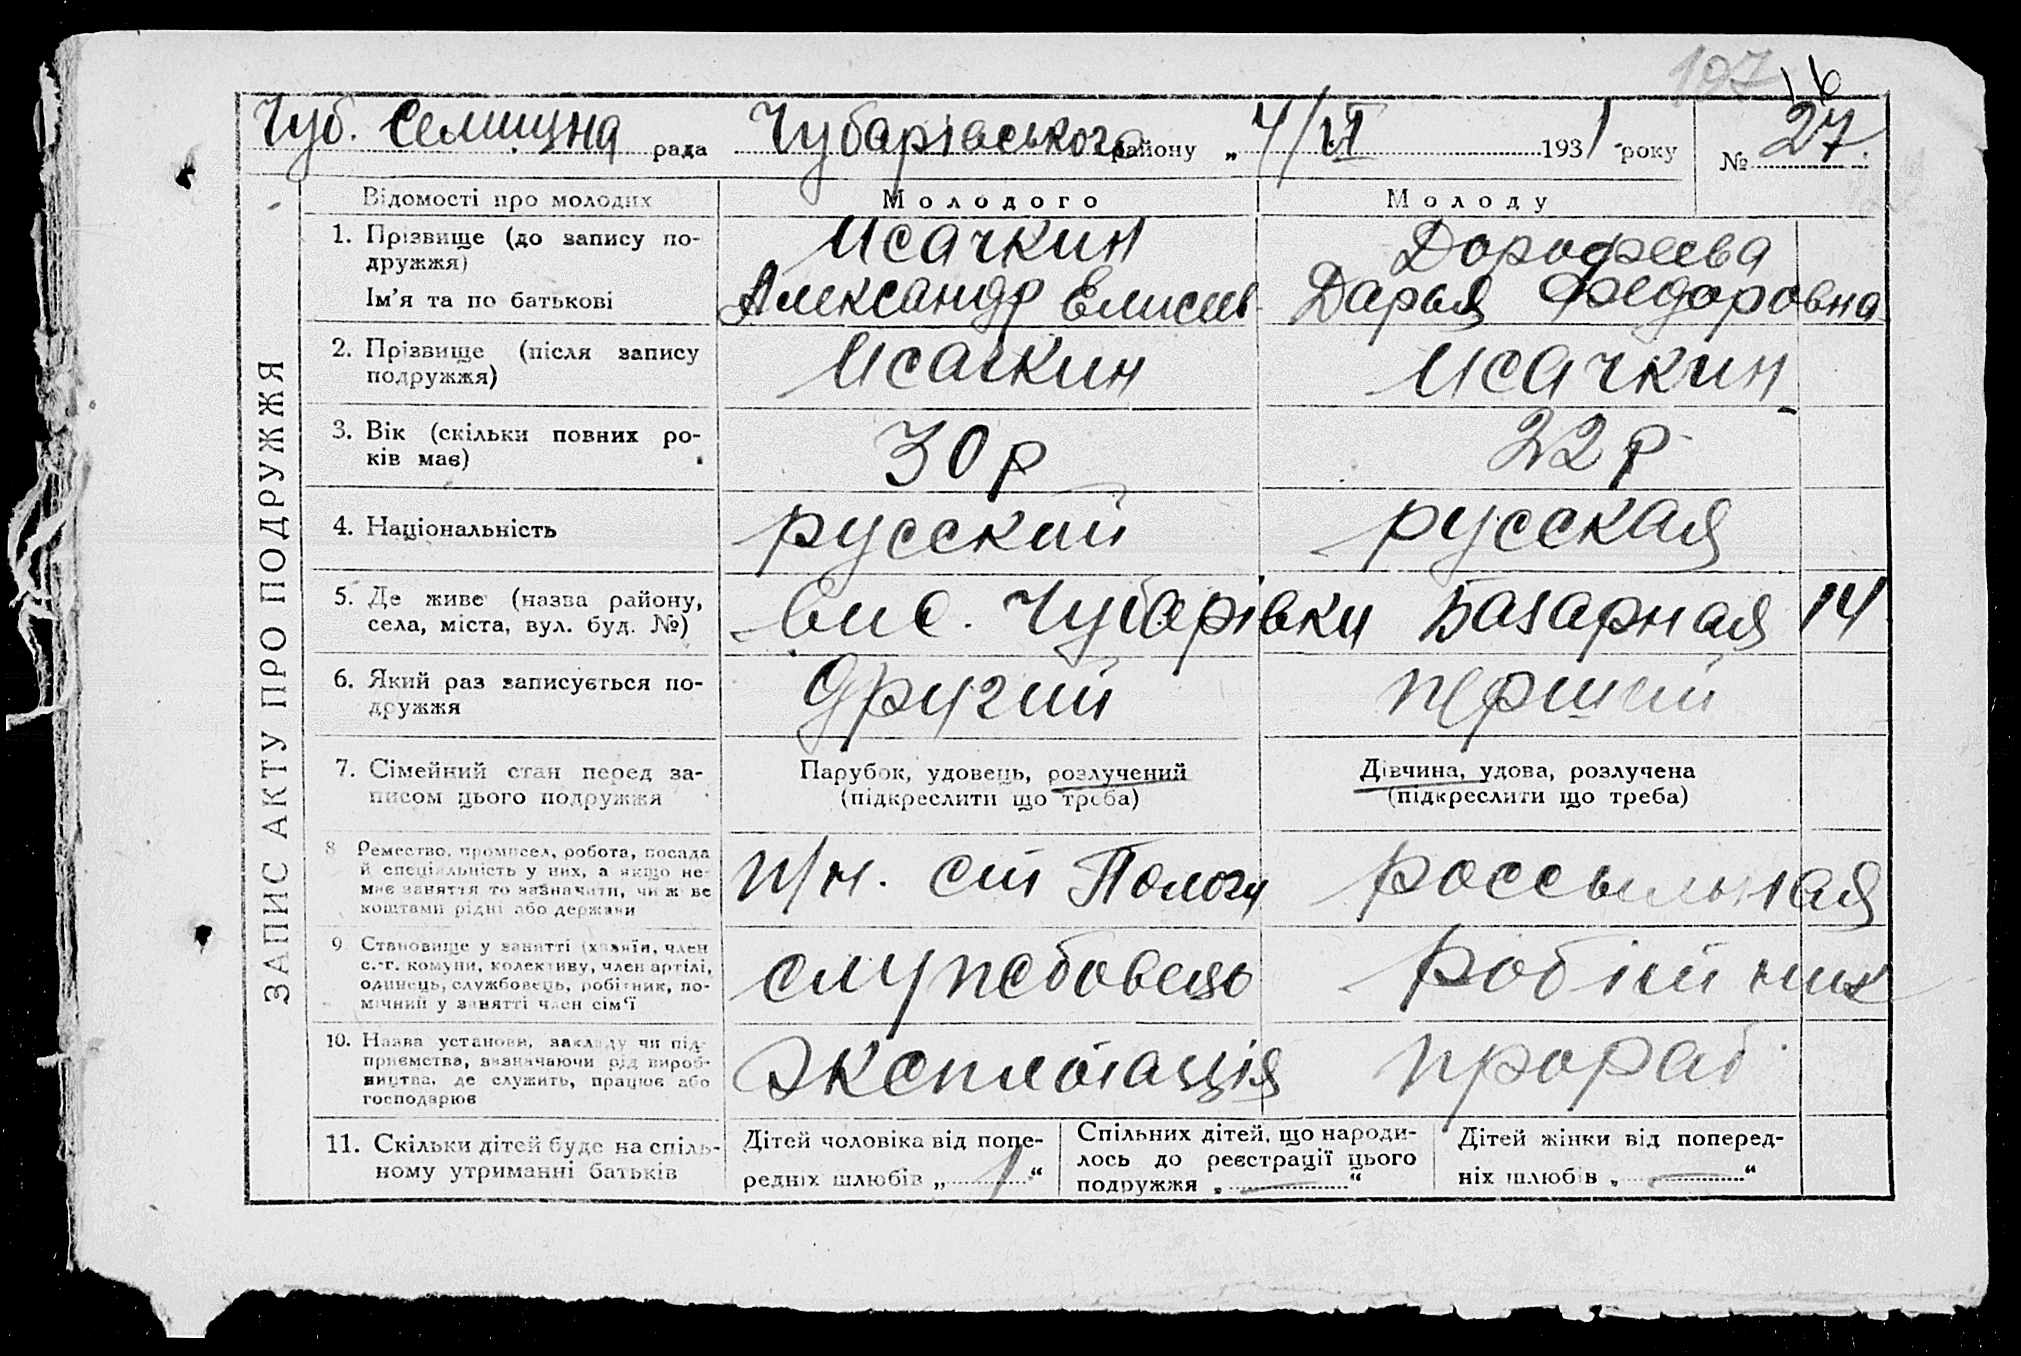 197 16
Чуб. Селищна рада Чубарівського району „ 4/VI 1931 року № 27
Відомості про молодих Молодого Молоду
1. Прізвище (до запису по- Исачкин Дорофеева
дружжя)
Ім’я та по батькові Александр Елисеев Дарья Федоровна
2. Прізвище (після запису Исачкин Исачкин
подружжя)
3. Вік (скільки повних ро- 30 р 22 р
ків має)
4. Національність русский русская
5. Де живе (назва району, вис. Чубарівки Базарная 14
села, міста, вул. буд. №)
6. Який раз записується по- другий перший
дружжя
7. Сімейний стан перед за- Парубок, удовець, розлучений Дівчина, удова, розлучена
писом цього подружжя (підкреслити що треба) (підкреслити що треба)
8 Ремество, промисел, робота, посада п/н. ст Пологи россыльная
й спеціяльність у них, а якщо не-
має заняття то зазначити, чи живе
коштами рідні або держави
9 Становище у занятті (хазяїн, член служебовець робітник
с.-г. комуни, колективу, член артілі,
одинець, службовець, робітник, по-
мічний у занятті член сім’ї
10. Назва установи, закладу чи під- эксплотація прораб
приємства, визначаючи рід вироб-
ництва, де служить, працює або
господарює
11. Скільки дітей буде на спіль- Дітей чоловіка від попе- Спільних дітей, що народи- Дітей жінки від поперед-
ному утриманні батьків редніх шлюбів „ 1 “ лось до реєстрації цього ніх шлюбів „ — “
подружжя „ — “
ЗАПИС АКТУ ПРО ПОДРУЖЖЯ